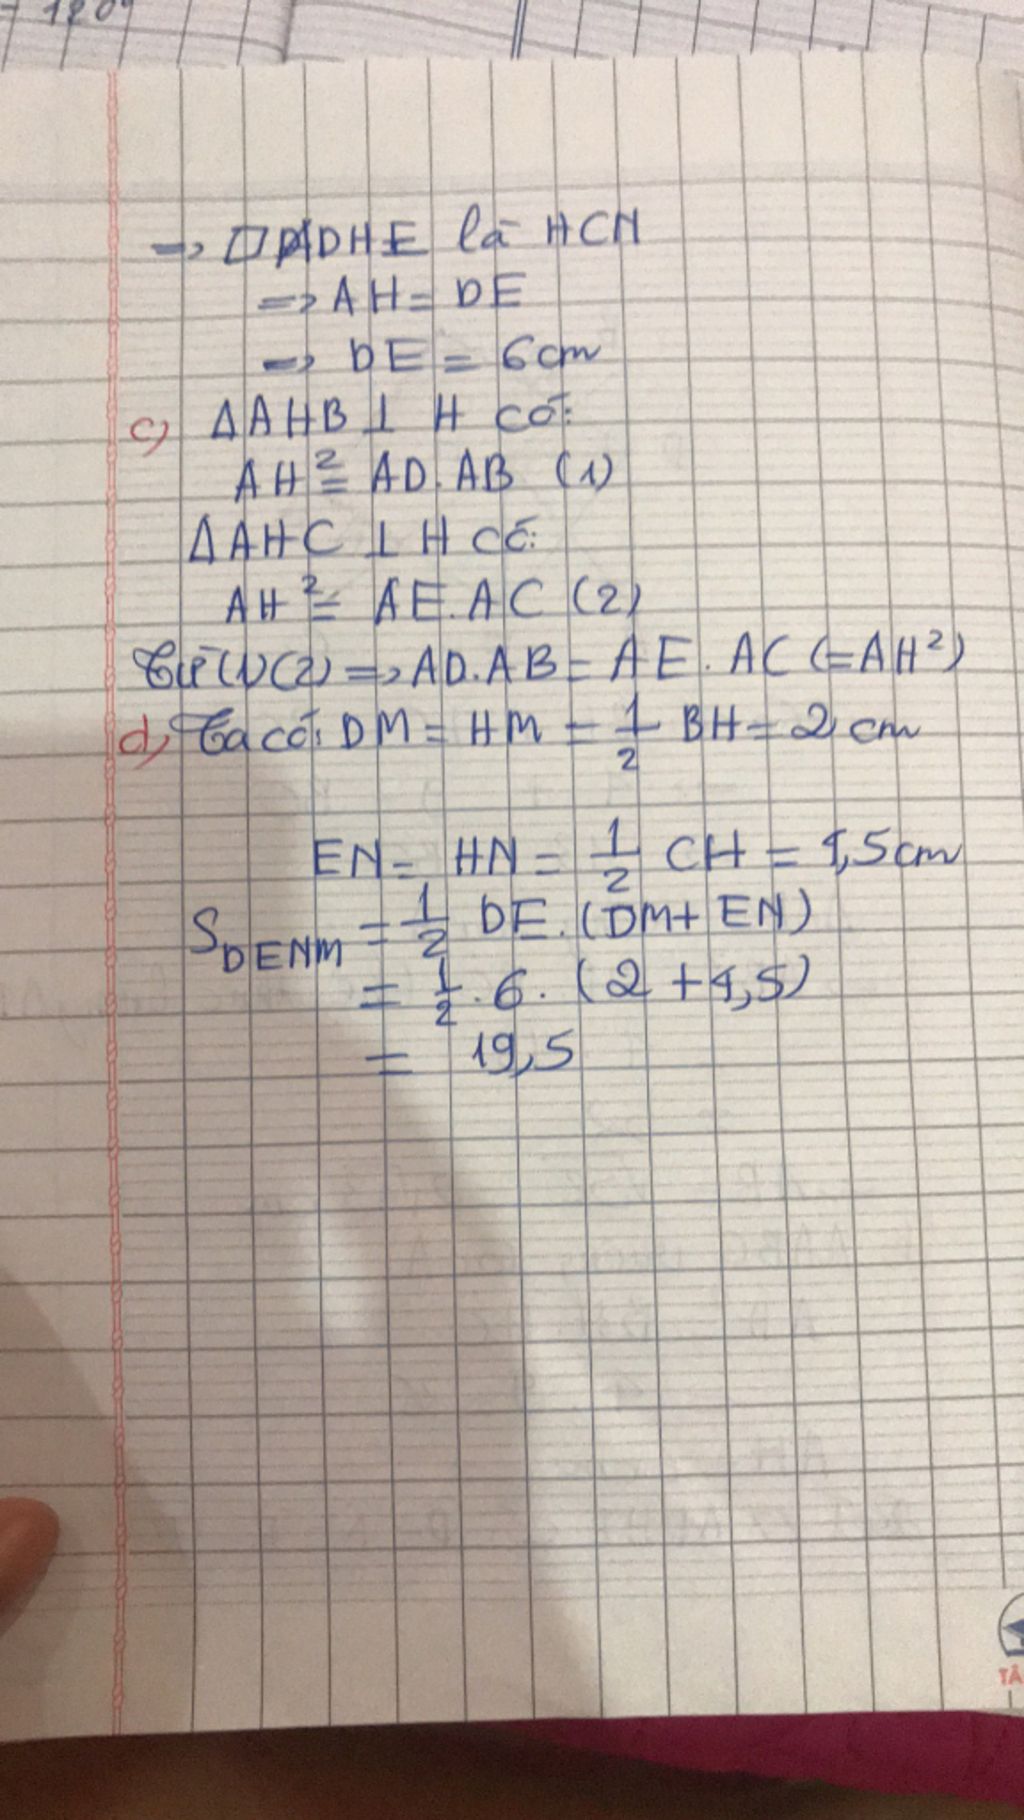 ⇒ □ADHE là HCN
⇒ AH = DE
⇒ DE = 6cm
c) ΔAHB ⊥ H có:
AH² = AD.AB (1)
ΔAHC ⊥ H có:
AH² = AE.AC (2)
Từ (1)(2) ⇒ AD.AB = AE.AC (=AH²)
d) Ta có: DM = HM = 1/2 BH = 2 cm
EN = HN = 1/2 CH = 4,5cm
S_DENM = 1/2 DE.(DM+EN)
= 1/2 . 6 . (2 + 4,5)
= 19,5
TÂ